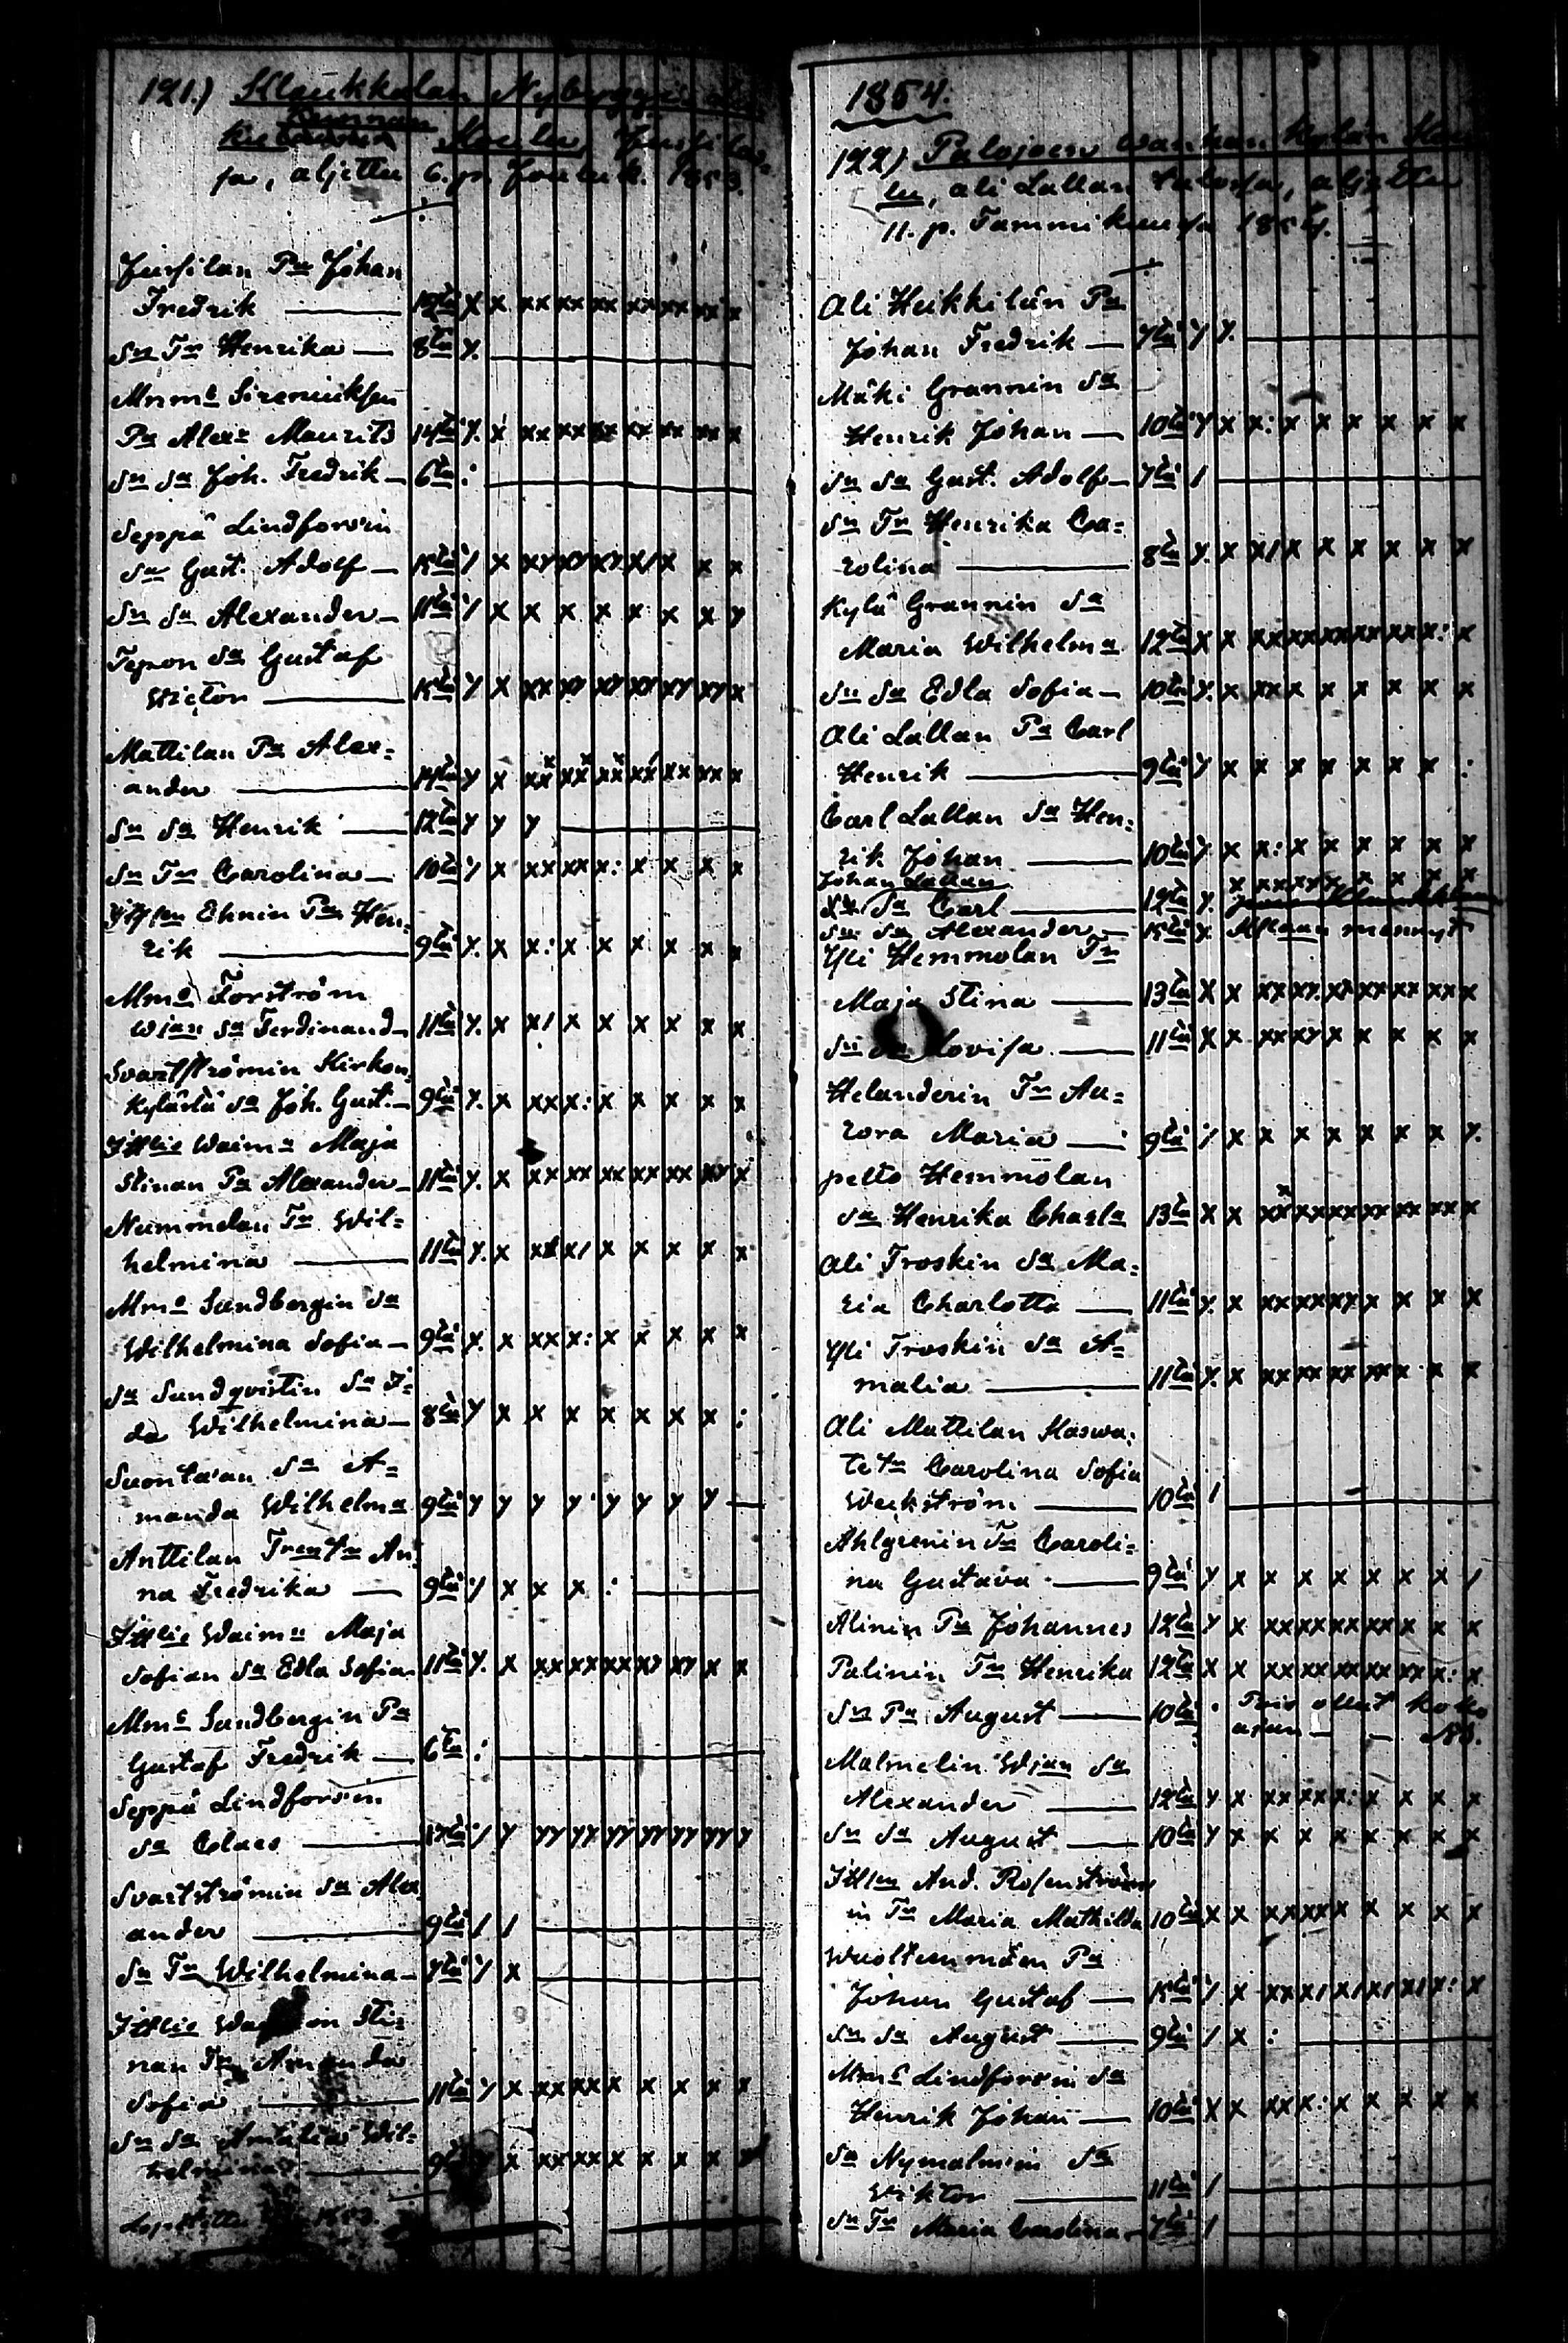 121.) Klaukkalan Nybyggin
Kunnan
Koulu, Jussilas-
sa, aljettu 6. p. Jouluk. 1853.
Jussilan Pa Johan
Fredrik — 12ta x x xx xx xx xx xx xx x
Sn Tr Henrika — 8ta y.
Mnme Sireniuksen
Pa Alexr Maurits 14ta y. x xx xx xx xx xx xx x
Sn Sa Joh. Fredrik — 6ta :
Seppä Lindforsin
Sa Gust. Adolf — 15ta y x xy xy xy x/ x x x
Sn Sa Alexander — 11ta y x x x x x x x y
Tepon Sa Gustaf
Wictor — 15ta y x xx xy xy xy xy xy x
Mattilan Pa Alex=
ander — 14ta y x xx xx xx xx xx xx x
Sn Sa Henrik — 12ta y y y
Sn Tr Carolina — 10ta y x xx xx x: x x x x
Ehnin Pa Hen=
rik — 9tä y. x x: x x x x x x
Mme Forström
Wjan Sa Ferdinand — 11ta y. x x/ x x x x x x
Svartströmin Kirkon=
kylästä Sa Joh. Gust. — 9tä y. x xx x: x x x x x
Ittlis Waimn Maja
Stinan Pa Alexander — 11ta y. x xx xx xx xx xx xy x
Nummelan Tr Wil=
helmina — 11ta y. x xx x/ x x x x x
Mme Sandbergin Sa
Wilhelmina Sofia — 9tä y. x xx x: x x x x x
Sa Sundqvistin Sa I=
da Wilhelmina — 8ta y x x x x x x x :
Suonta'an Sa A=
manda Wilhelma 9tä y y y y y y y y —
Anttilan An=
na Fredrika — 9tä y x x x :
Ittlis Waimn Maja
Sofian Sa Edla Sofia 11ta y. x xx xx xx xy xy x x
Mme Sandbergin Pa
Gustaf Fredrik — 6ta :
Seppä Lindforsin
Sa Claes — y y yy yy yy yy yy yy y
Svartströmin Sa Alex
ander — 9tä / /
Sn Tr Wilhelmina — 7tä y x
Ittlis Sti=
nan Tr Amanda
Sofia — 11ta y x xx xx x x x x x
Sn Sa Amalia Wil=
helmina — x xx xx x x x x
1853.
1854.
122) Palojoen wanhan Kylän Kou
lu, ali Lallan talossa, aljettu
11. p. Tammikuussa 1854.
Ali Heikkilän Pa
Johan Fredrik — 7tä y y.
Mäki Grannin Sa
Henrik Johan — 10tä y x x: x x x x x x
Sn Sa Gust. Adolf — 7tä /
Sn Tr Henrika Ca=
rolina — 8ta y. x x/ x x x x x x
Kylä Grannin Sa
Maria Wilhelma 12ta x x xx xx xx xx xx x: x
Sn Sa Edla Sofia — 10tä y. x xx x x x x x x
Ali Lallan Pa Carl
Henrik — 9tä y x x x x x x x :
Carl Lallan Sa Hen=
rik Johan — 10tä y. x x: x x x x x x
Johan Lallan
Sa Carl — 12ta y. x xx xx x x x x x
Sn Sa Alexander — 15tä x mennyt
Yli Hemmolan Tr
Maja Stina — 13ta x x xx xy. xx xx xx xx x
Sn Lovisa — 11tä x x xx xy x x x x x
Helanderin Tr Au=
rora Maria — 9tä / x x x x x x x y.
pelto Hemmolan
Sa Henrika Charla 13ta x x xx xx xx xx xx xx x
Ali Troskin Sa Ma=
ria Charlotta — 11tä y. x xx xx xy x x x x
Yli Troskin Sa A=
malia — 11tä y. x xx xx xx xx x x x
Ali Mattilan Kaswa=
tetn Carolina Sofia
Weckström — 10tä /
Ahlgrenin Tr Caroli=
na Gustava — 9tä y x x x x x x x /
Alinin Pa Johannes 12ta y x xx xx xx xx x x x
Palinin Tr Henrika 12ta x x xx xx xx xx xx x: x
Sn Pa August — 10tä . Pois ollut koko
ajan —
Malmelin Wjan Sa
Alexander — 12ta y x xx xx x: x x x x
Sn Sa August — 10tä y x x x x x x x x
Ittsen And. Rosenström
in Tr Maria Mathilda 10tä x x xx xx x x x x x
Wuoltenmäen Pa
Johan Gustaf — 15tä y x xx x/ x/ x/ x/ x: x
Sn Sa August — 9tä / x :
Mme Lindforsin Sa
Henrik Johan — 10tä x x xx x: x x x x x
Sa Nymalmin Sa
Viktor — 11tä /
Sn Tr Maria Carolina — 7tä /